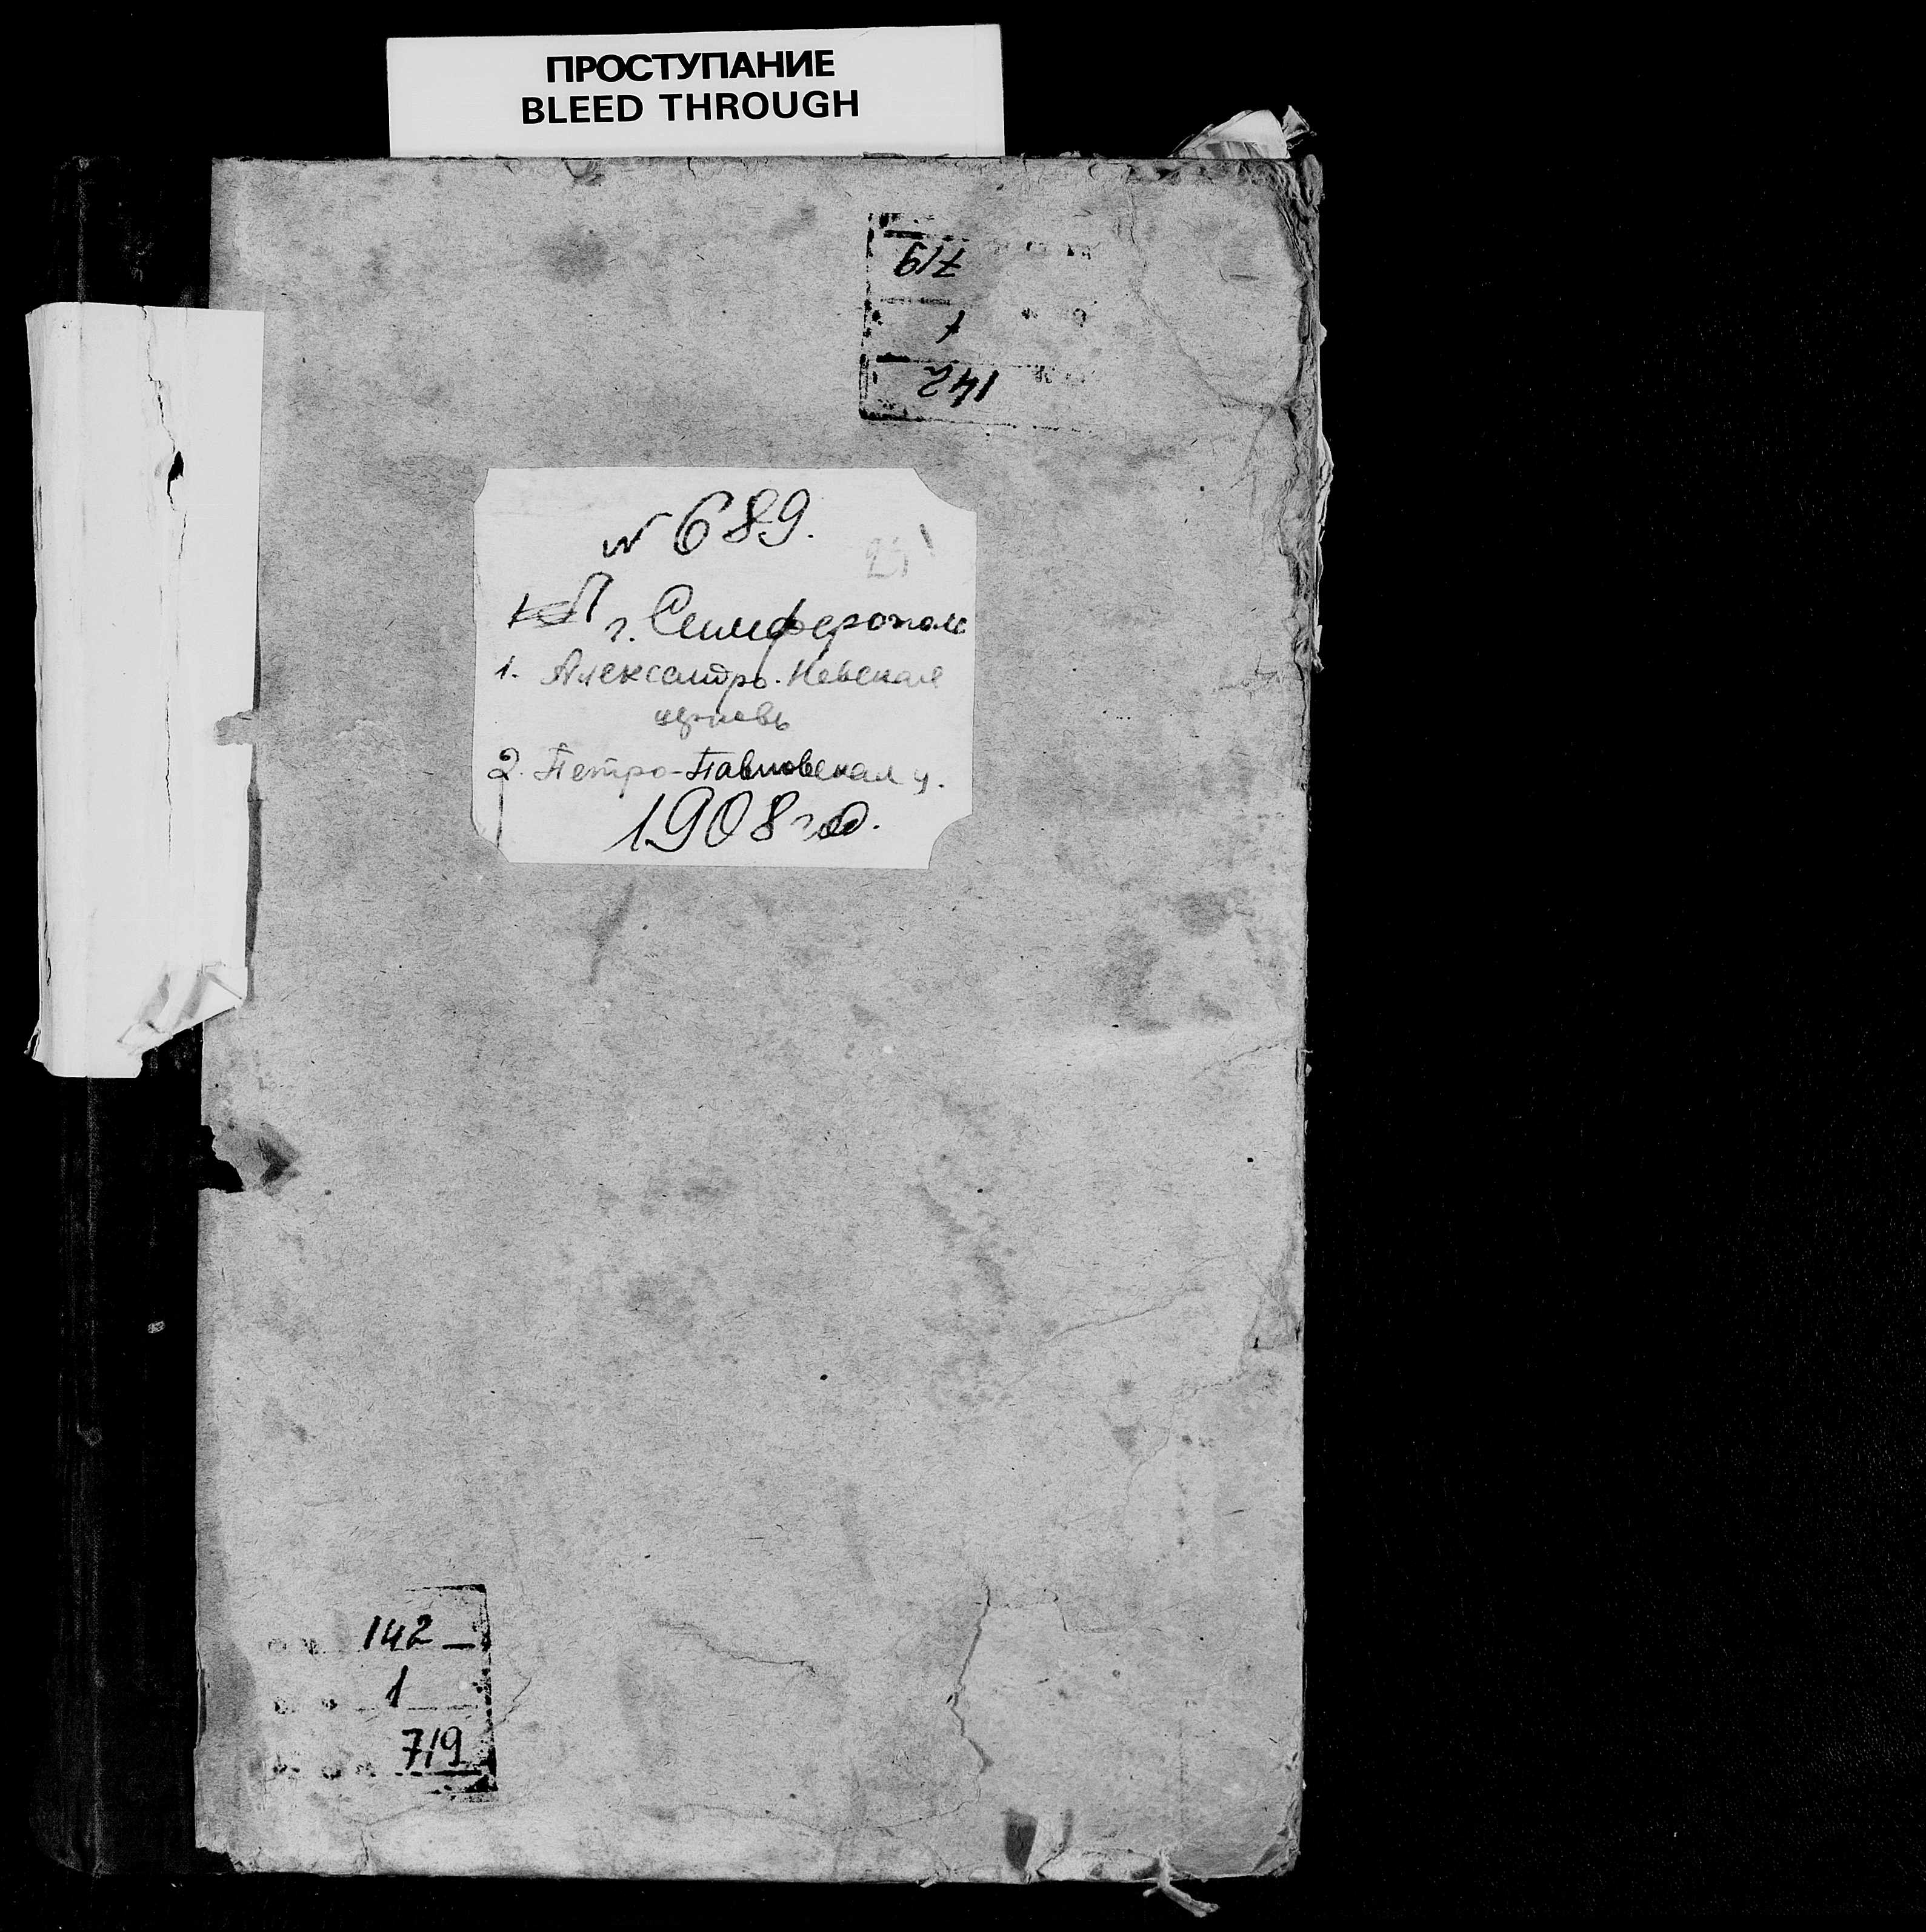 ПРОСТУПАНИЕ
BLEED THROUGH
719
1
142
№ 689.
г. Симферополь
1. Александро-Невская
церковь
2. Петро-Павловская ц.
1908 год.
142
1
719